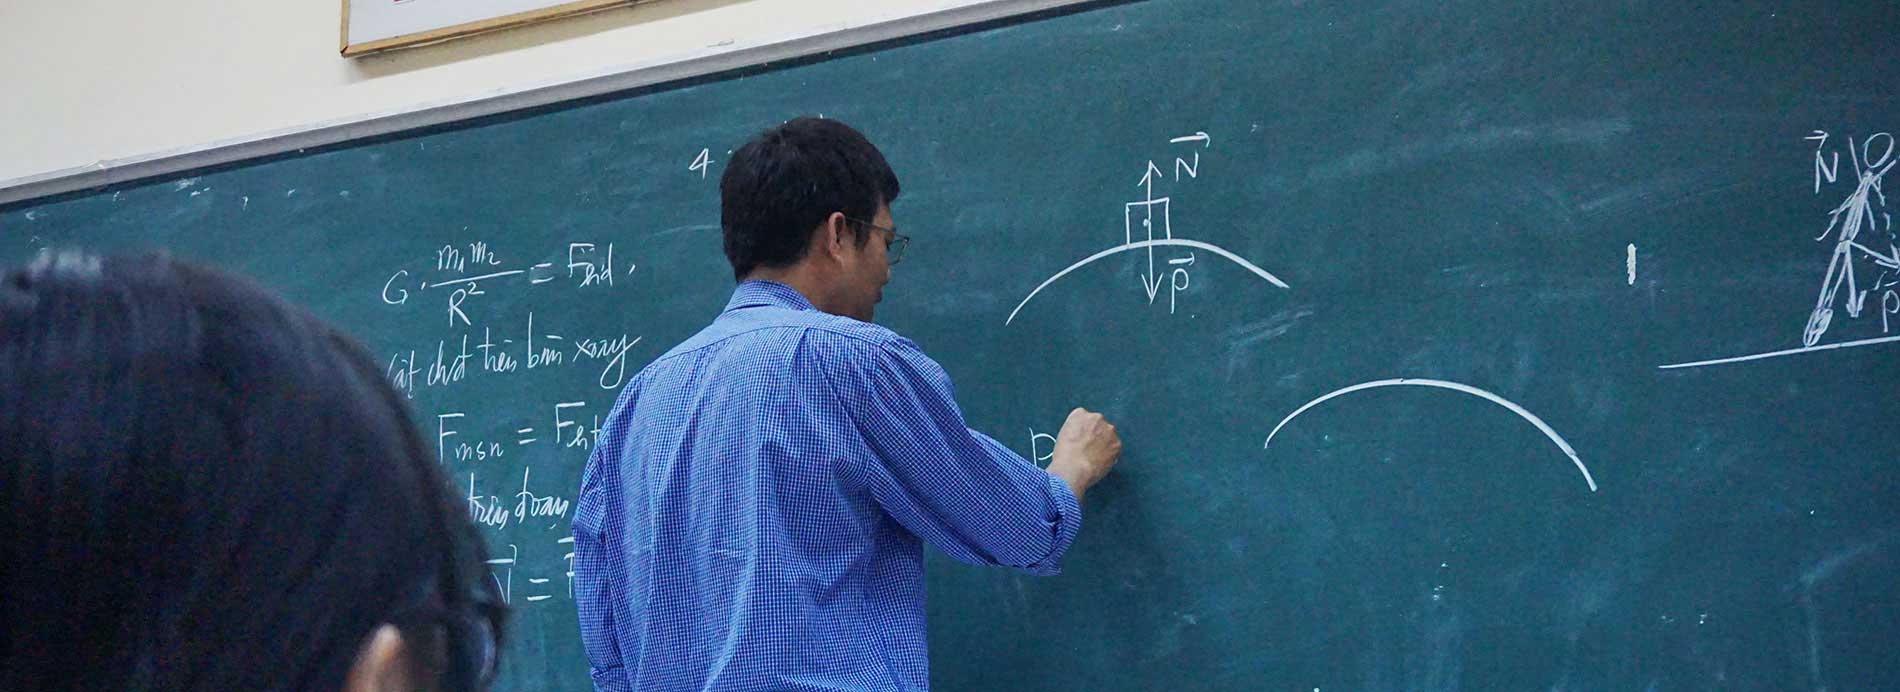 4
G. m₁m₂ / R² = Fhd,
vật chất trên bàn xoay
Fmsn = Fht
trên đoạn
N =
N
P
P
N
P